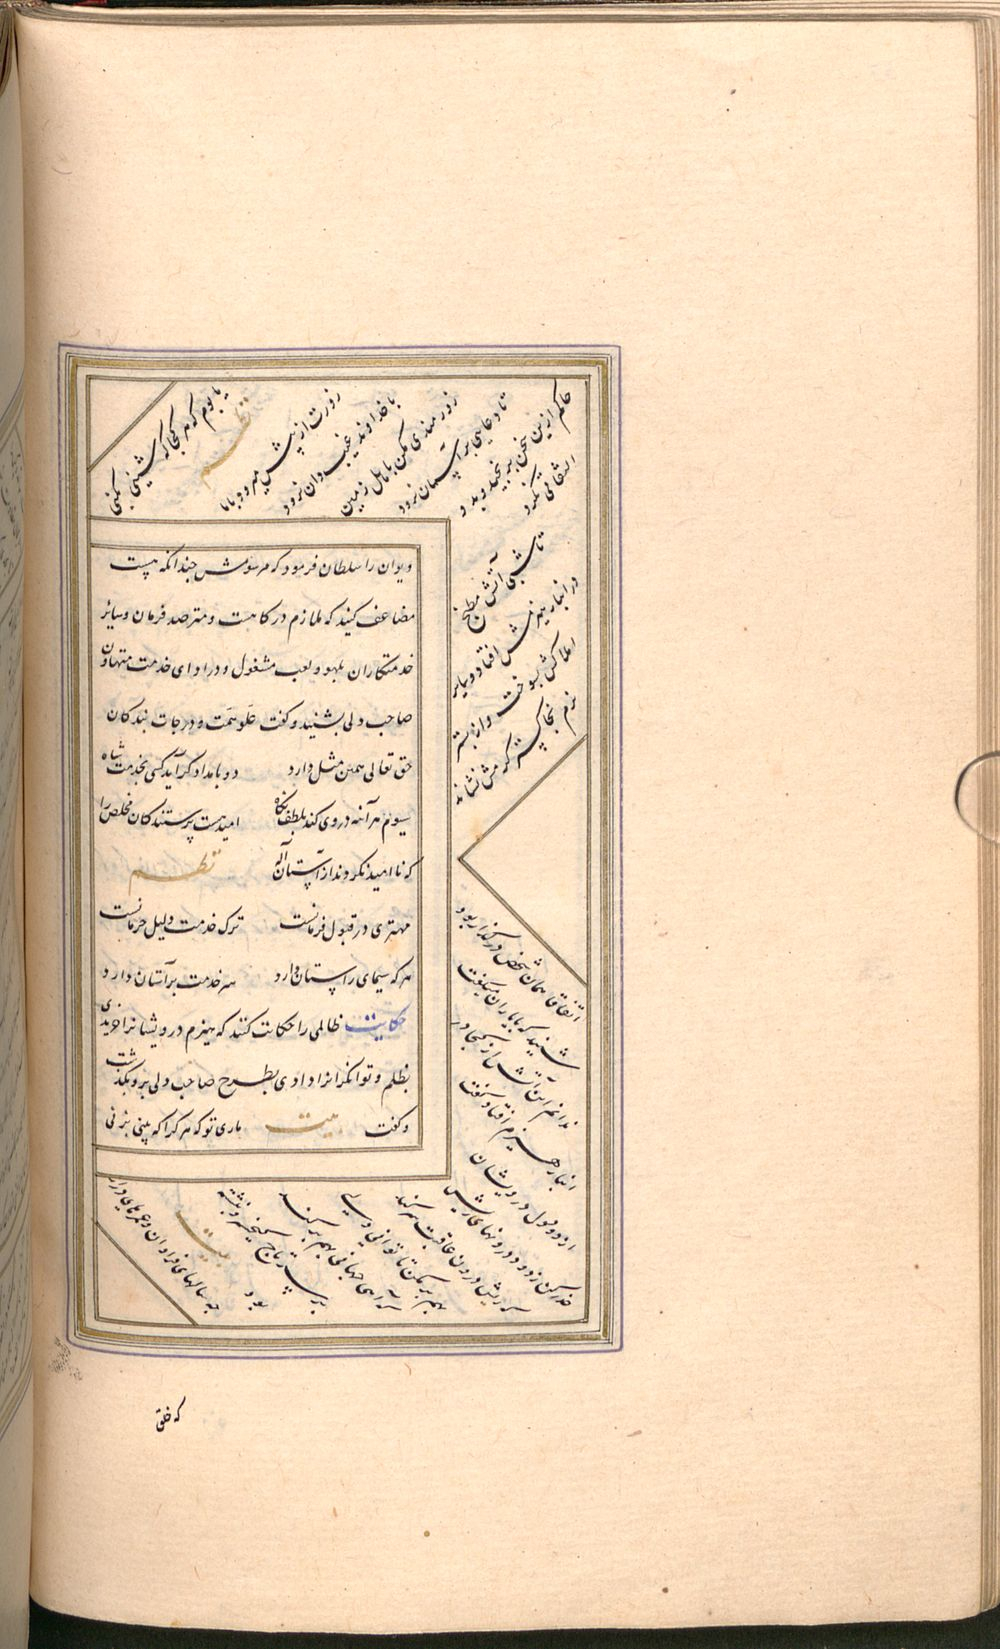 دیوان را سلطان فرمود که مرسومش چندانکه هست
مضاعف کنید که ملازم درگاهست و مترصد فرمان و سایر
خدمتکاران بلهو و لعب مشغول و در ادای خدمت متهاون
صاحب دلی بشنید و گفت علو همت و درجات بندگان
حق تعالی همین مثل دارد دو بامداد گر آید کسی بخدمت شاه
سیوم هر آنه در وی کند بلطف نگاه امید هست پرستندگان مخلص را
که ناامید نگردند از آستان آله نظم
مهتری در قبول فرمانست ترک خدمت دلیل حرمانست
هر که سیمای راستان دارد سر خدمت بر آستان دارد
حکایت ظالمی را حکایت کنند که هیزم درویشان را خریدی
بظلم و توانگرانرا دادی بطرح صاحب دلی برو بگذشت
و گفت بیت ماری تو که هر کرا که بینی بزنی
یا بوم که هر کجا که نشینی بکنی
نظم
زورت از پیش میرود با ما
با خداوند غیب دان نرود
زورمندی مکن با اهل زمین
تا دعایی بر آسمان نرود
حاکم ازین سخن برنجید و بدو
التفاتی نکرد
تا شبی آتش مطبخ
در انبار هیزمش افتاد و سایر
املاکش بسوخت و از بستر
نرم بخاکستر گرمش نشاند
اتفاقا همان شخص در گذار بود و
شنید که با یاران میگفت
ندانم این آتش از کجا در
انبار هیزم افتاد گفت
از دود دل درویشان
حذر کن ز دود درونهای ریش
که ریش درون عاقبت سر کند
بهم بر مکن تا توانی دلی
که آهی جهانی بهم بر کند
بر تاج کیخسرو نبشته
بود
بیت
چه سالهای فراوان و عمرهای دراز
که خلق